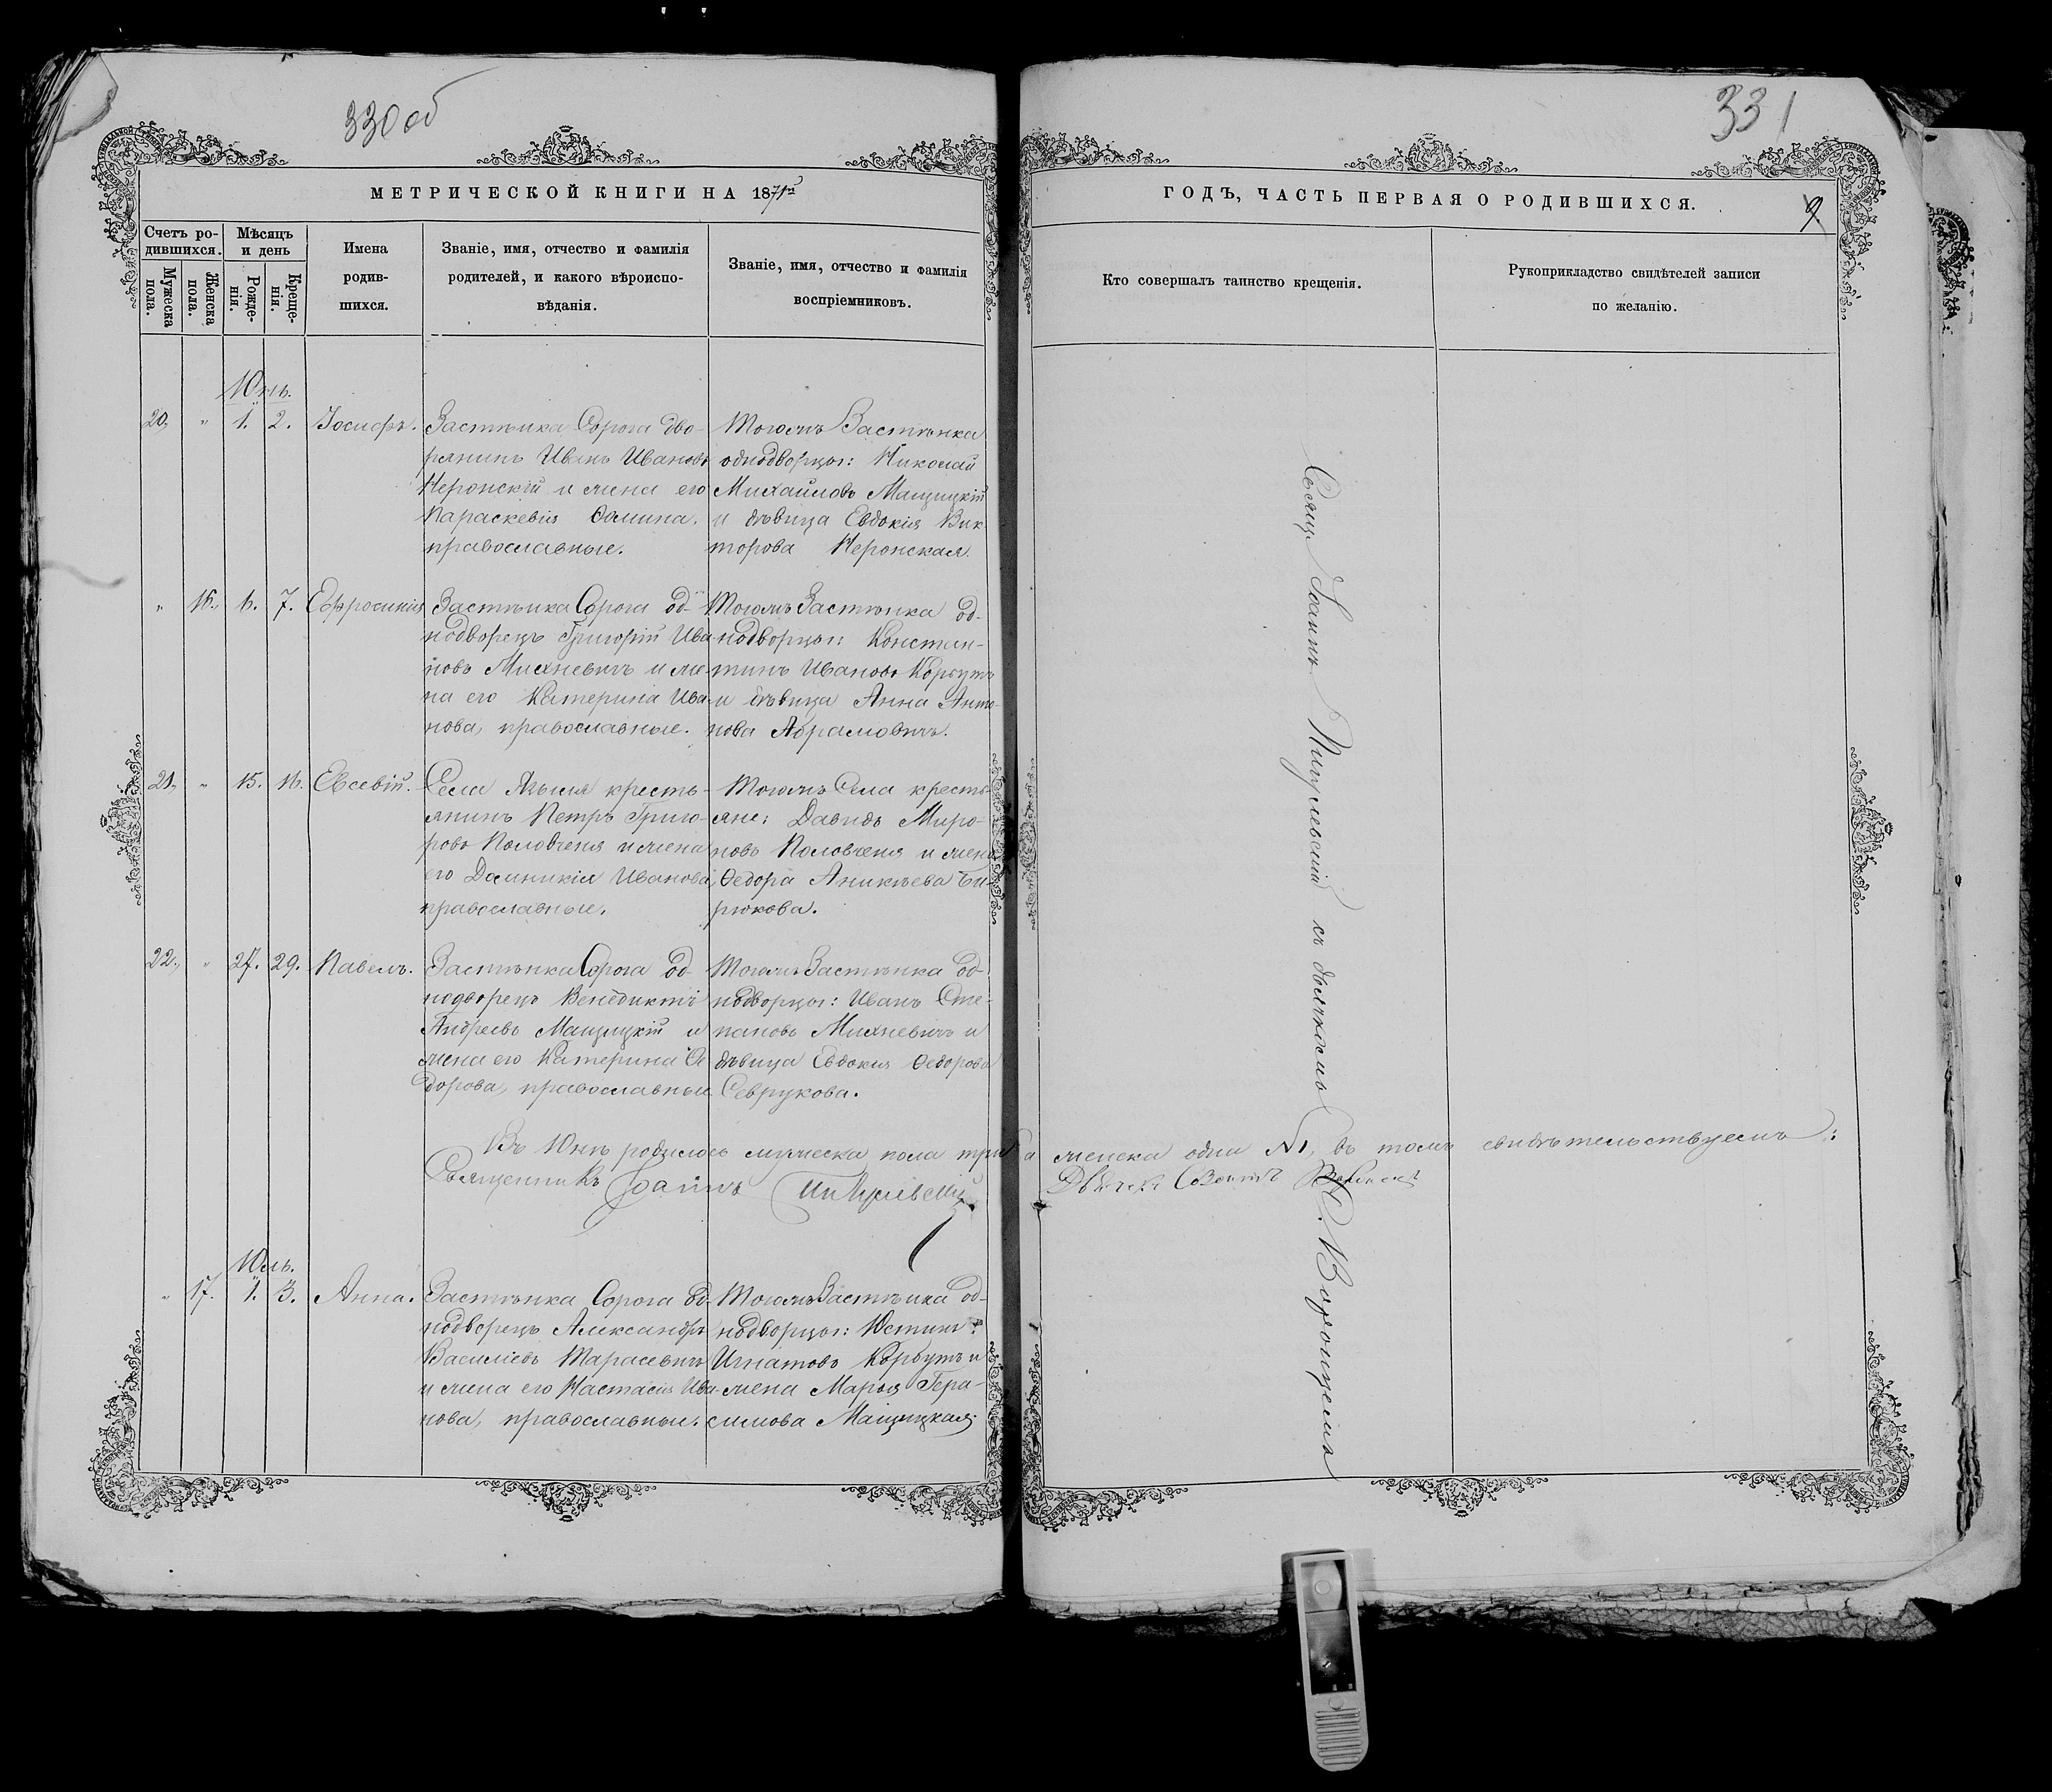 330 об
331
МЕТРИЧЕСКОЙ КНИГИ НА 1871й
ГОДЪ, ЧАСТЬ ПЕРВАЯ О РОДИВШИХСЯ.
9
Счетъ ро-
дившихся.
Мужеска
пола.
Женска
пола.
Мѣсяцъ
и день
Рожде-
нія.
Креще-
нія.
Имена
родив-
шихся.
Званіе, имя, отчество и фамилія
родителей, и какого вѣроиспо-
вѣданія.
Званіе, имя, отчество и фамилія
воспріемниковъ.
Кто совершалъ таинство крещенія.
Рукоприкладство свидѣтелей записи
по желанію.
Юнь.
20, " 1. 2. Іосифъ.
Застѣнка Сорога дво-
рянинъ Иванъ Ивановъ
Неронскій и жена его
Параскевія Ѳомина.
православные.
Тогожъ Застѣнка
однодворцы: Николай
Михайловъ Мащицкій
и дѣвица Евдокія Вик
торова Неронская.
" 16, 6. 7. Евфросинія
Застѣнка Сорога од-
нодворецъ Григорій Ива
новъ Михневичъ и же-
на его Катерина Ива-
нова, православные.
Тогожъ Застѣнка од-
нодворцы: Констан-
тинъ Ивановъ Корбутъ
и дѣвица Анна Анто-
нова Абрамовичъ.
21, " 15. 16. Евсевій.
Села Языля кресть-
янинъ Петръ Григо-
ровъ Половченя и жена
его Домникія Иванова,
православные.
Тогожъ Села кресть
яне: Давидъ Миро-
новъ Половченя и жена
Ѳедора Аникѣева Би-
рюкова.
22, " 27. 29. Павелъ.
Застѣнка Сорога од-
нодворецъ Венедиктъ
Андреевъ Мащицкій и
жена его Катерина Ѳе
дорова, православные
Тогожъ Застѣнка од-
нодворцы: Иванъ Сте-
пановъ Михневичъ и
дѣвица Евдокія Ѳедорова
Севрукова.
Въ Юнѣ родилось мужеска пола три а женска одна №1, въ томъ свидѣтельствуемъ:
Священникъ Іоаннъ Пигулевскій
Юль.
" 17. 1. 3. Анна.
Застѣнка Сорога од-
нодворецъ Александръ
Василіевъ Тарасевичъ
и жена его Настасія Ива-
нова, православные.
Тогожъ Застѣнка од-
нодворцы: Юстинъ
Игнатовъ Корбутъ и
жена Марья Гера-
симова Мащицкая.
Свящ. Іоаннъ Пигулевскій съ дьячкомъ